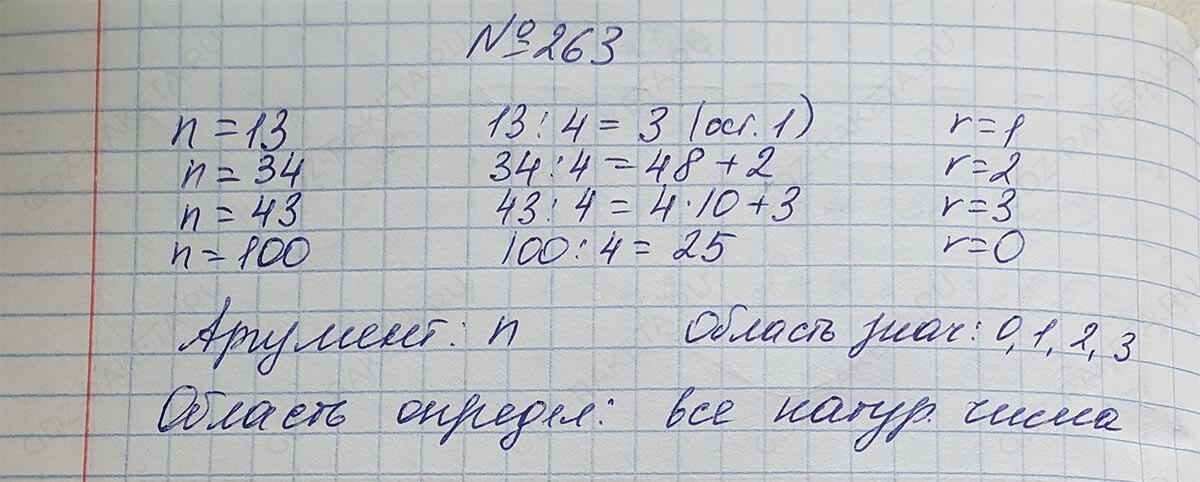 №263
n = 13 13 : 4 = 3 (ост. 1) r = 1
n = 34 34 : 4 = 48 + 2 r = 2
n = 43 43 : 4 = 4 · 10 + 3 r = 3
n = 100 100 : 4 = 25 r = 0
Аргумент: n Область знач: 0, 1, 2, 3
Область определ: все натур. числа